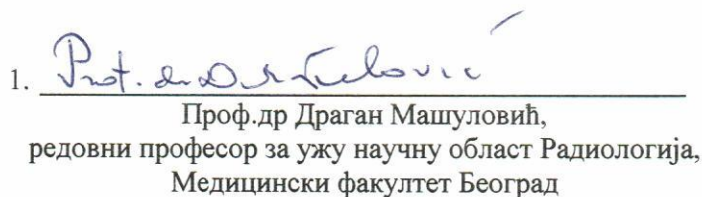 1. Prof. dr
Проф.др Драган Машуловић,
редовни професор за ужу научну област Радиологија,
Медицински факултет Београд